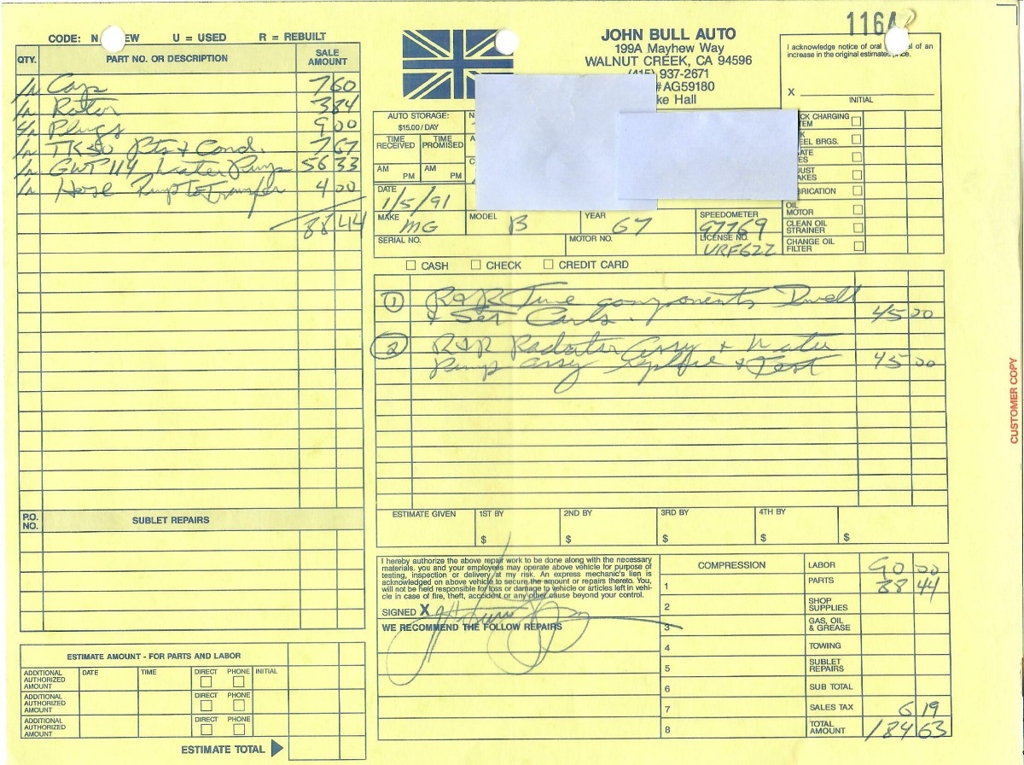 CODE: N EW U = USED R = REBUILT
QTY. PART NO. OR DESCRIPTION SALE AMOUNT
1/N Cap 7 60
1/N Rotor 3 84
4/N Plugs 9 00
1/N TK50 Pts & Cond. 7 67
1/N GWP114 Water Pump 56 33
1/N Hose Pump to Transfer 4 00
88 44
P.O. NO. SUBLET REPAIRS
ESTIMATE AMOUNT - FOR PARTS AND LABOR
ADDITIONAL AUTHORIZED AMOUNT DATE TIME DIRECT PHONE INITIAL
ADDITIONAL AUTHORIZED AMOUNT DIRECT PHONE
ADDITIONAL AUTHORIZED AMOUNT DIRECT PHONE
ESTIMATE TOTAL
JOHN BULL AUTO
199A Mayhew Way
WALNUT CREEK, CA 94596
(415) 937-2671
# AG59180
ke Hall
1164
I acknowledge notice of oral al of an
increase in the original estimated
X
INITIAL
AUTO STORAGE:
$15.00/DAY
TIME RECEIVED TIME PROMISED
AM PM AM PM
DATE
1/5/91
MAKE MG MODEL B YEAR 67 SPEEDOMETER 97769
SERIAL NO. MOTOR NO. LICENSE NO. URF622
CK CHARGING
TEM
K
EEL BRGS.
ATE
ES
JUST
AKES
BRICATION
OIL MOTOR
CLEAN OIL STRAINER
CHANGE OIL FILTER
CASH CHECK CREDIT CARD
1 R&R Tune components, Dwell
& Set Carbs. 45 00
2 R&R Radiator Assy & Water
Pump assy & Test 45 00
ESTIMATE GIVEN 1ST BY 2ND BY 3RD BY 4TH BY
$ $ $ $ $
I hereby authorize the above repair work to be done along with the necessary
materials. you and your employees may operate above vehicle for purpose of
testing, inspection or delivery at my risk. An express mechanic's lien is
acknowledged on above vehicle to secure the amount or repairs thereto. You,
will not be held responsible for loss or damage to vehicle or articles left in vehi-
cle in case of fire, theft, accident or any other cause beyond your control.
SIGNED X
WE RECOMMEND THE FOLLOW REPAIRS
COMPRESSION
1
2
3
4
5
6
7
8
LABOR 90 00
PARTS 88 44
SHOP SUPPLIES
GAS, OIL & GREASE
TOWING
SUBLET REPAIRS
SUB TOTAL
SALES TAX 6 19
TOTAL AMOUNT 184 63
CUSTOMER COPY